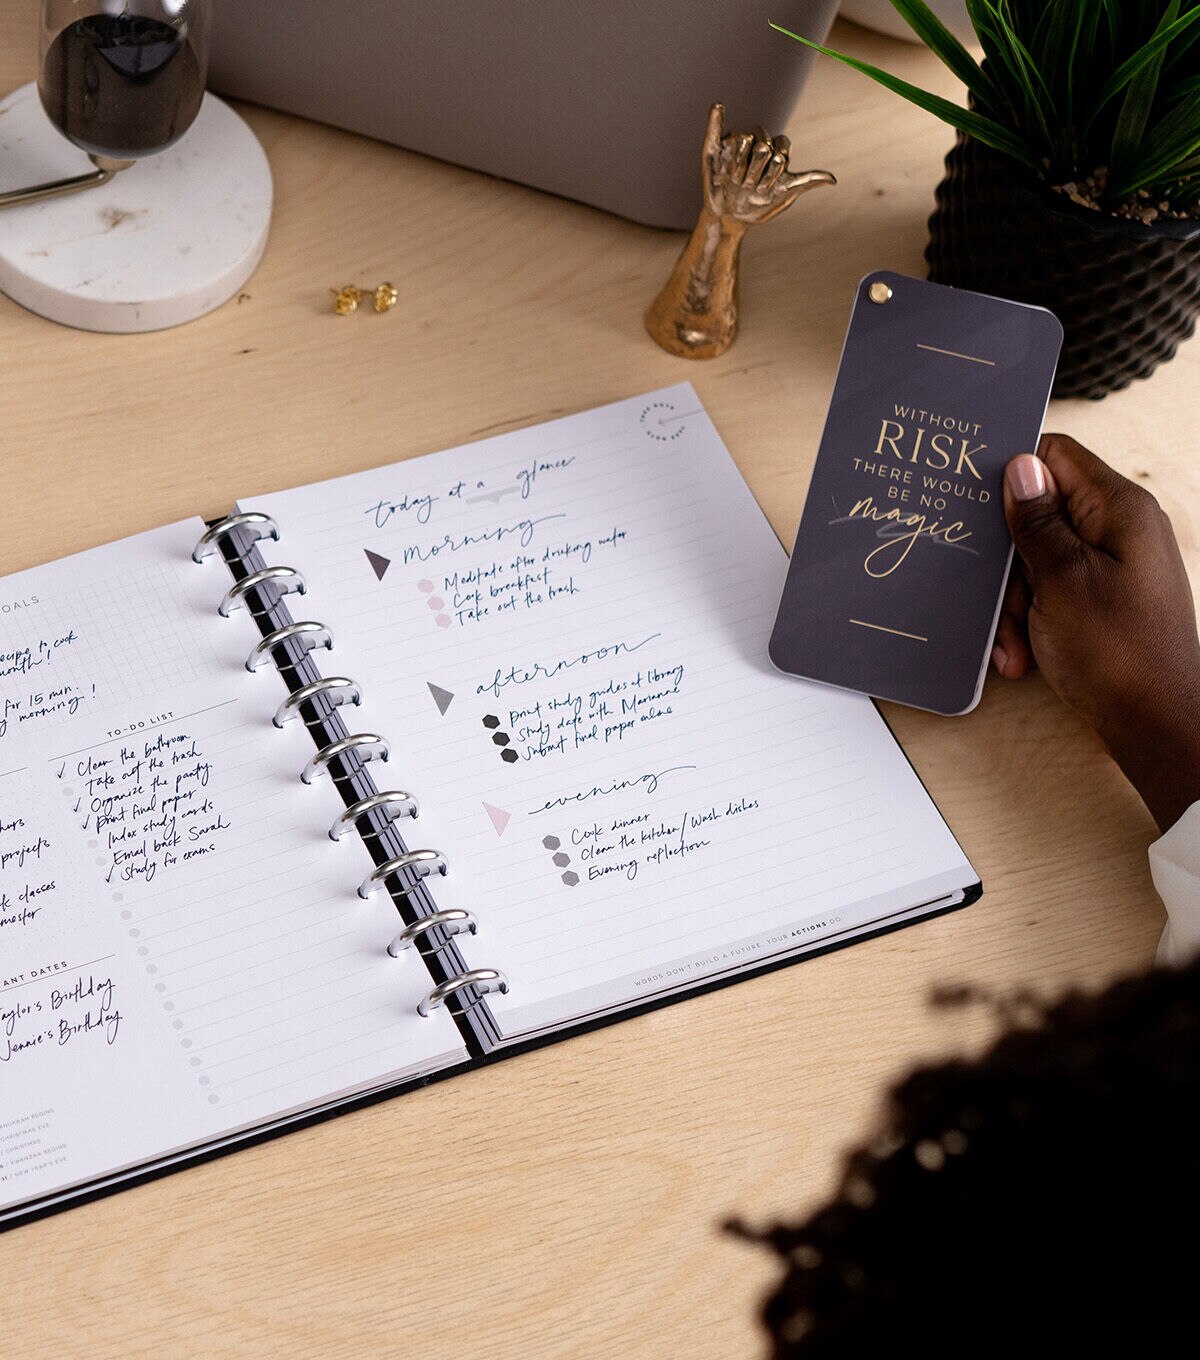 OALS
recipe to cook
month!
for 15 min.
morning!
TO-DO LIST
Clean the bathroom
Take out the trash
Organize the pantry
Print final paper
Index study cards
Email back Sarah
Study for exams
projects
classes
mester
ANT DATES
aylor's Birthday
Jennie's Birthday
ANUKKAH BEGINS
CHRISTMAS EVE
/ CHRISTMAS
/ KWANZAA BEGINS
31 / NEW YEAR'S EVE
today at a glance
morning
Meditate after drinking water
Cook breakfast
Take out the trash
afternoon
Print study guides at library
Study date with Marianne
Submit final paper online
evening
Cook dinner
Clean the kitchen/Wash dishes
Evening reflection
WORDS DON'T BUILD A FUTURE, YOUR ACTIONS DO.
WITHOUT
RISK
THERE WOULD
BE NO
magic